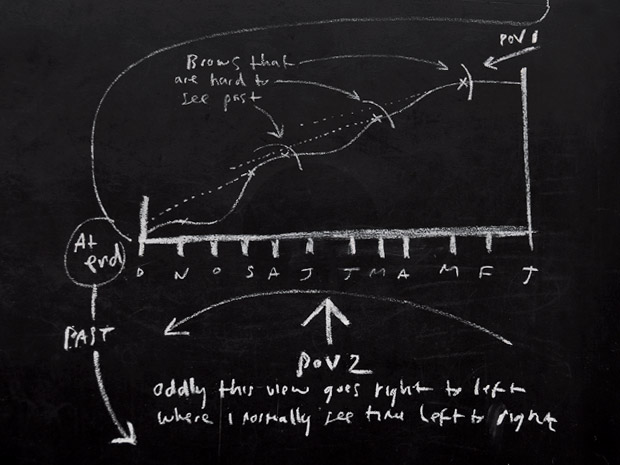 POV 1
Brows that
are hard to
see past
At
end
D N O S A J J M A M F J
PAST
POV 2
oddly this view goes right to left
where I normally see time left to right